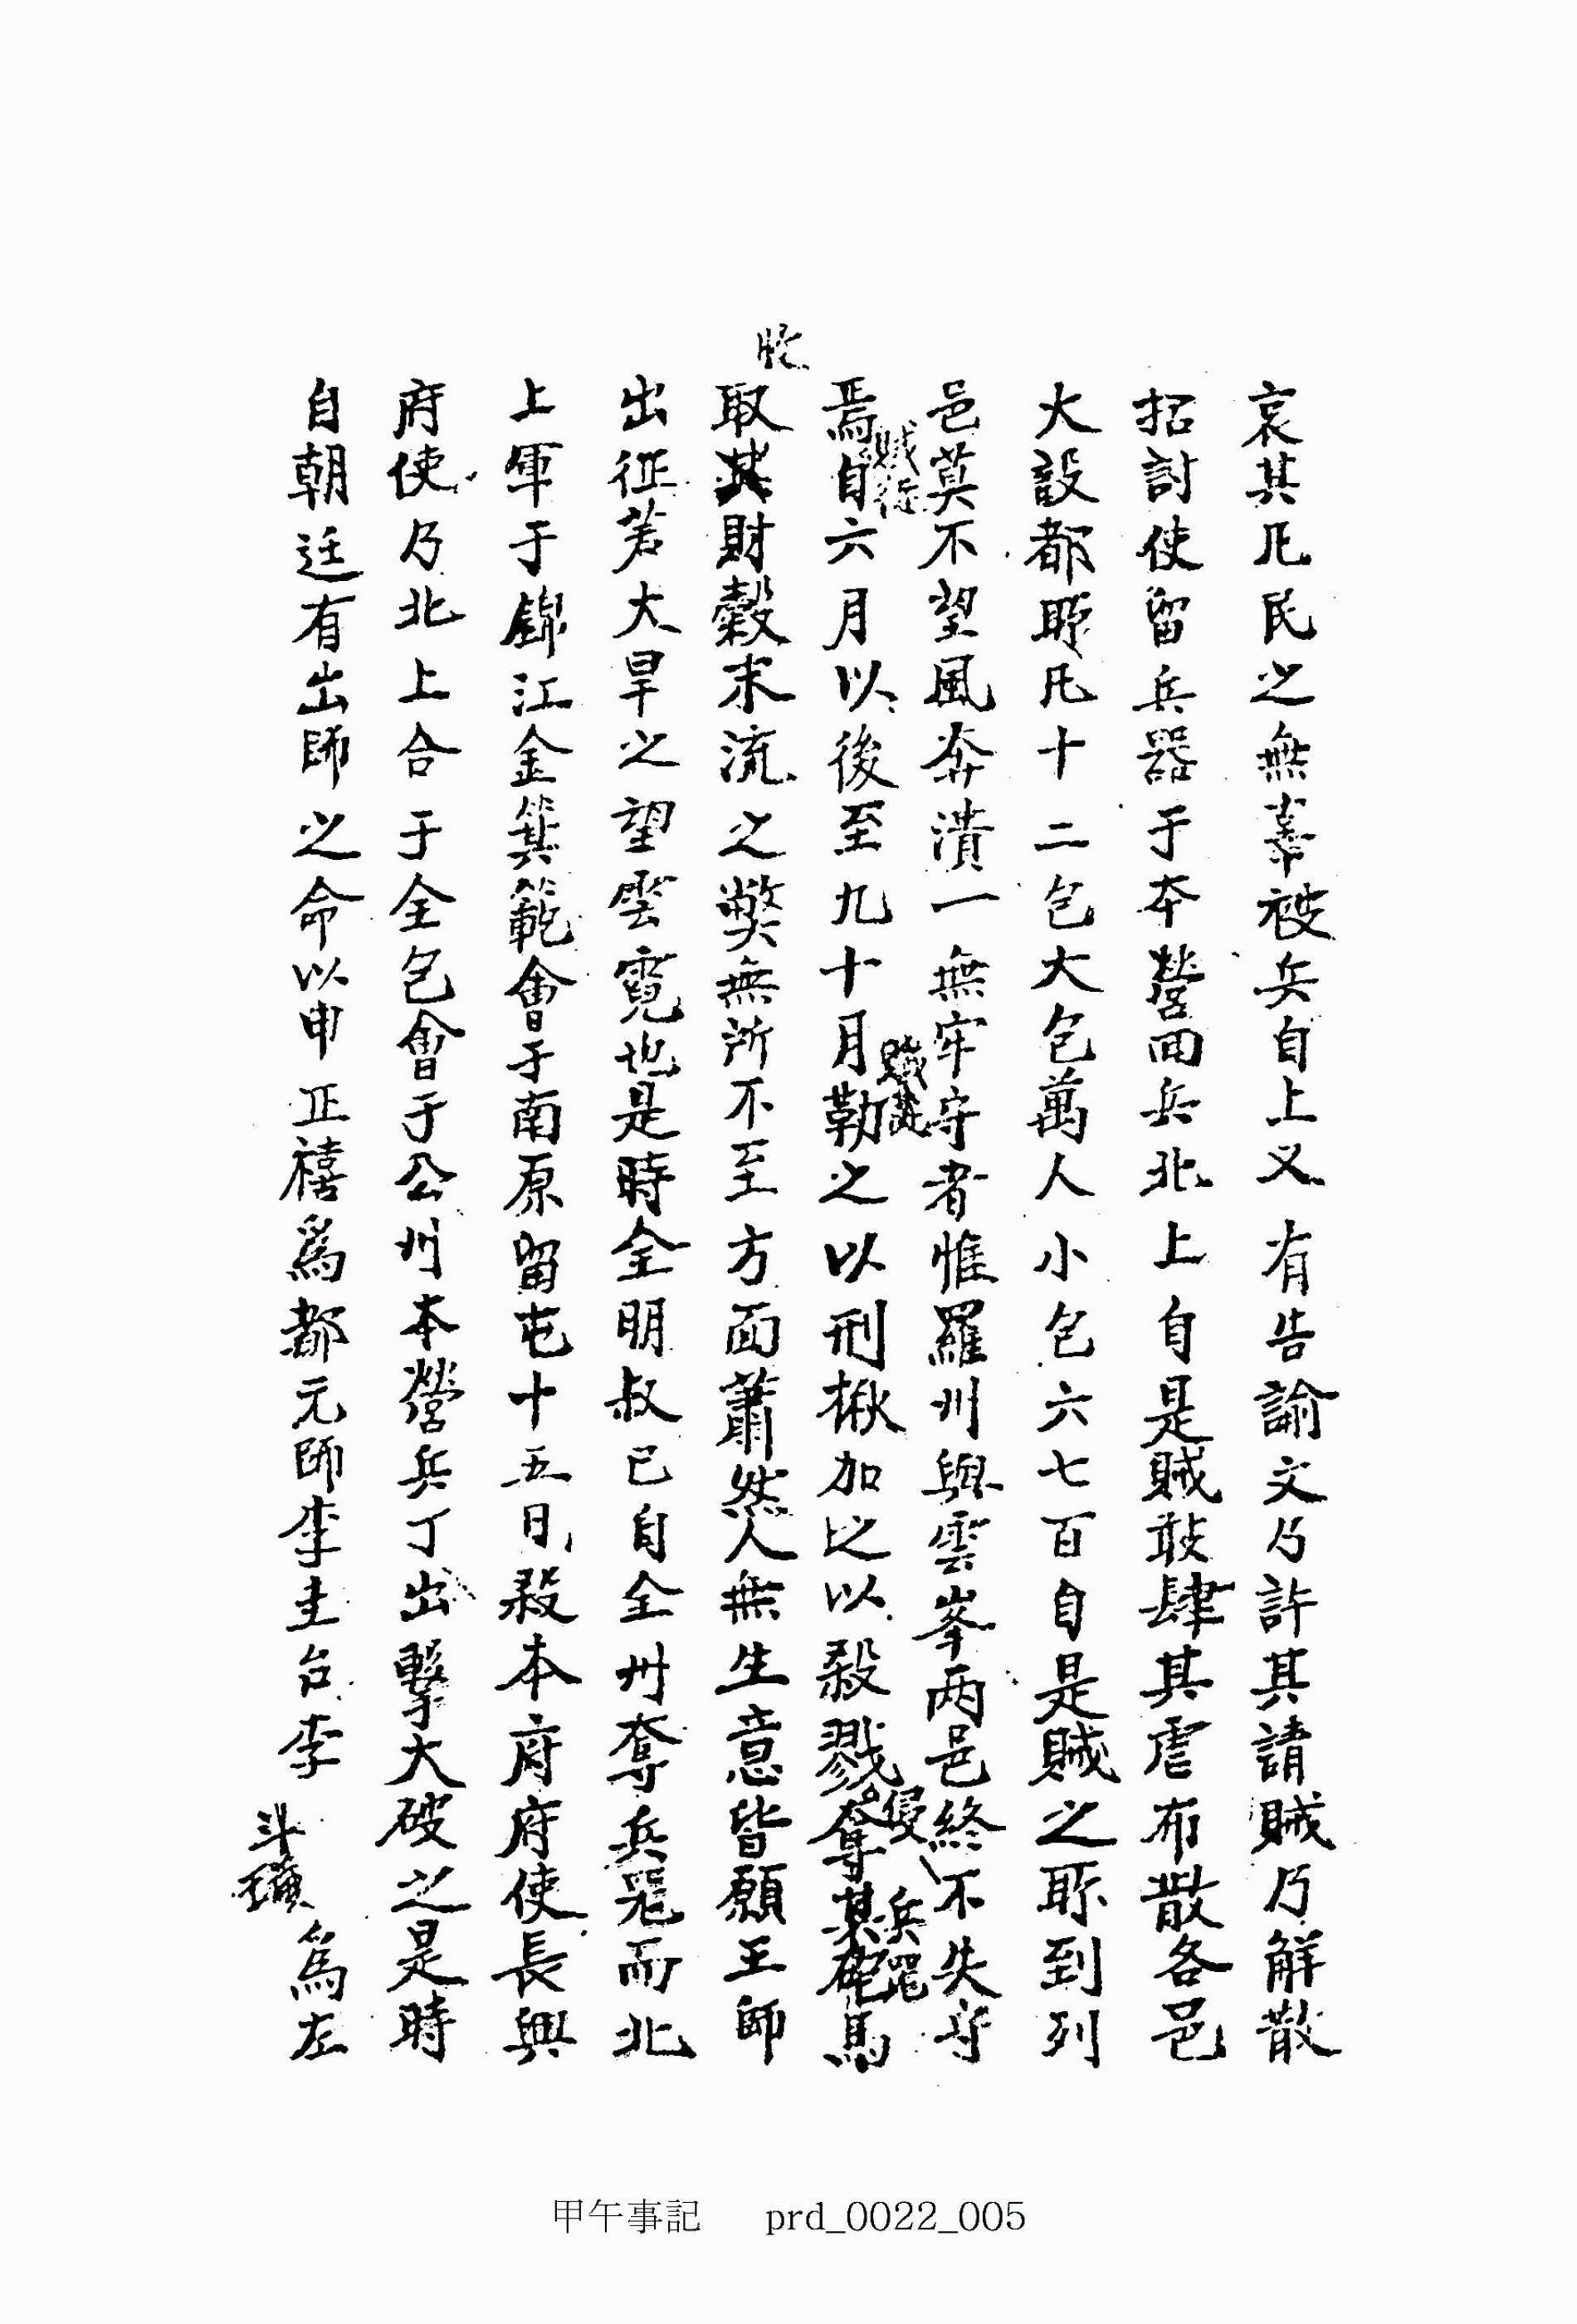 哀其凡民之無辜被兵自上又有告諭文乃許其請賊乃解散
招討使留兵器于本營回兵北上自是賊敢肆其虐布散各邑
大設都所凡十二包大包萬人小包六七百自是賊之所到列
邑莫不望風奔潰一無牢守者惟羅州與雲峯两邑終不失守
焉自六月以後至九十月勒之以刑楸加之以殺戮奪其砲馬
賊
賊
侵
兵
取其財穀末流之弊無所不至方面蕭然人無生意皆願王師
出征若大旱之望雲霓也是時全明叔已自全州奪兵器而北
上軍于錦江金箕範會于南原留屯十五日殺本府府使長興
府使乃北上合于全包會于公州本營兵丁出擊大破之是時
自朝廷有出師之命以申正禧爲都元師李圭台李斗璜爲左
甲午事記 prd_0022_005